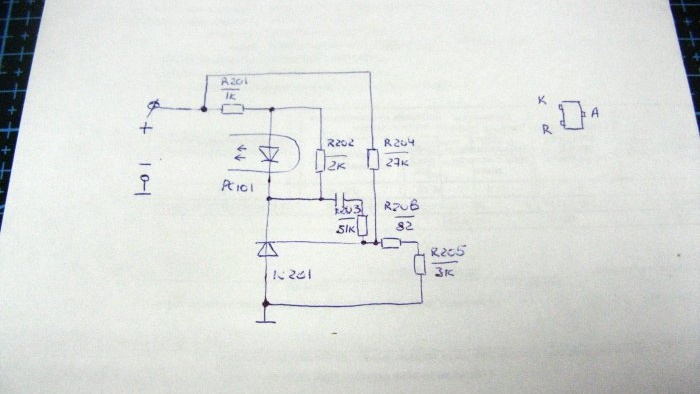 R201
1K
+
-
PC101
R202
2K
R204
27K
R203
51K
R206
82
R205
3K
IC201
K
A
R